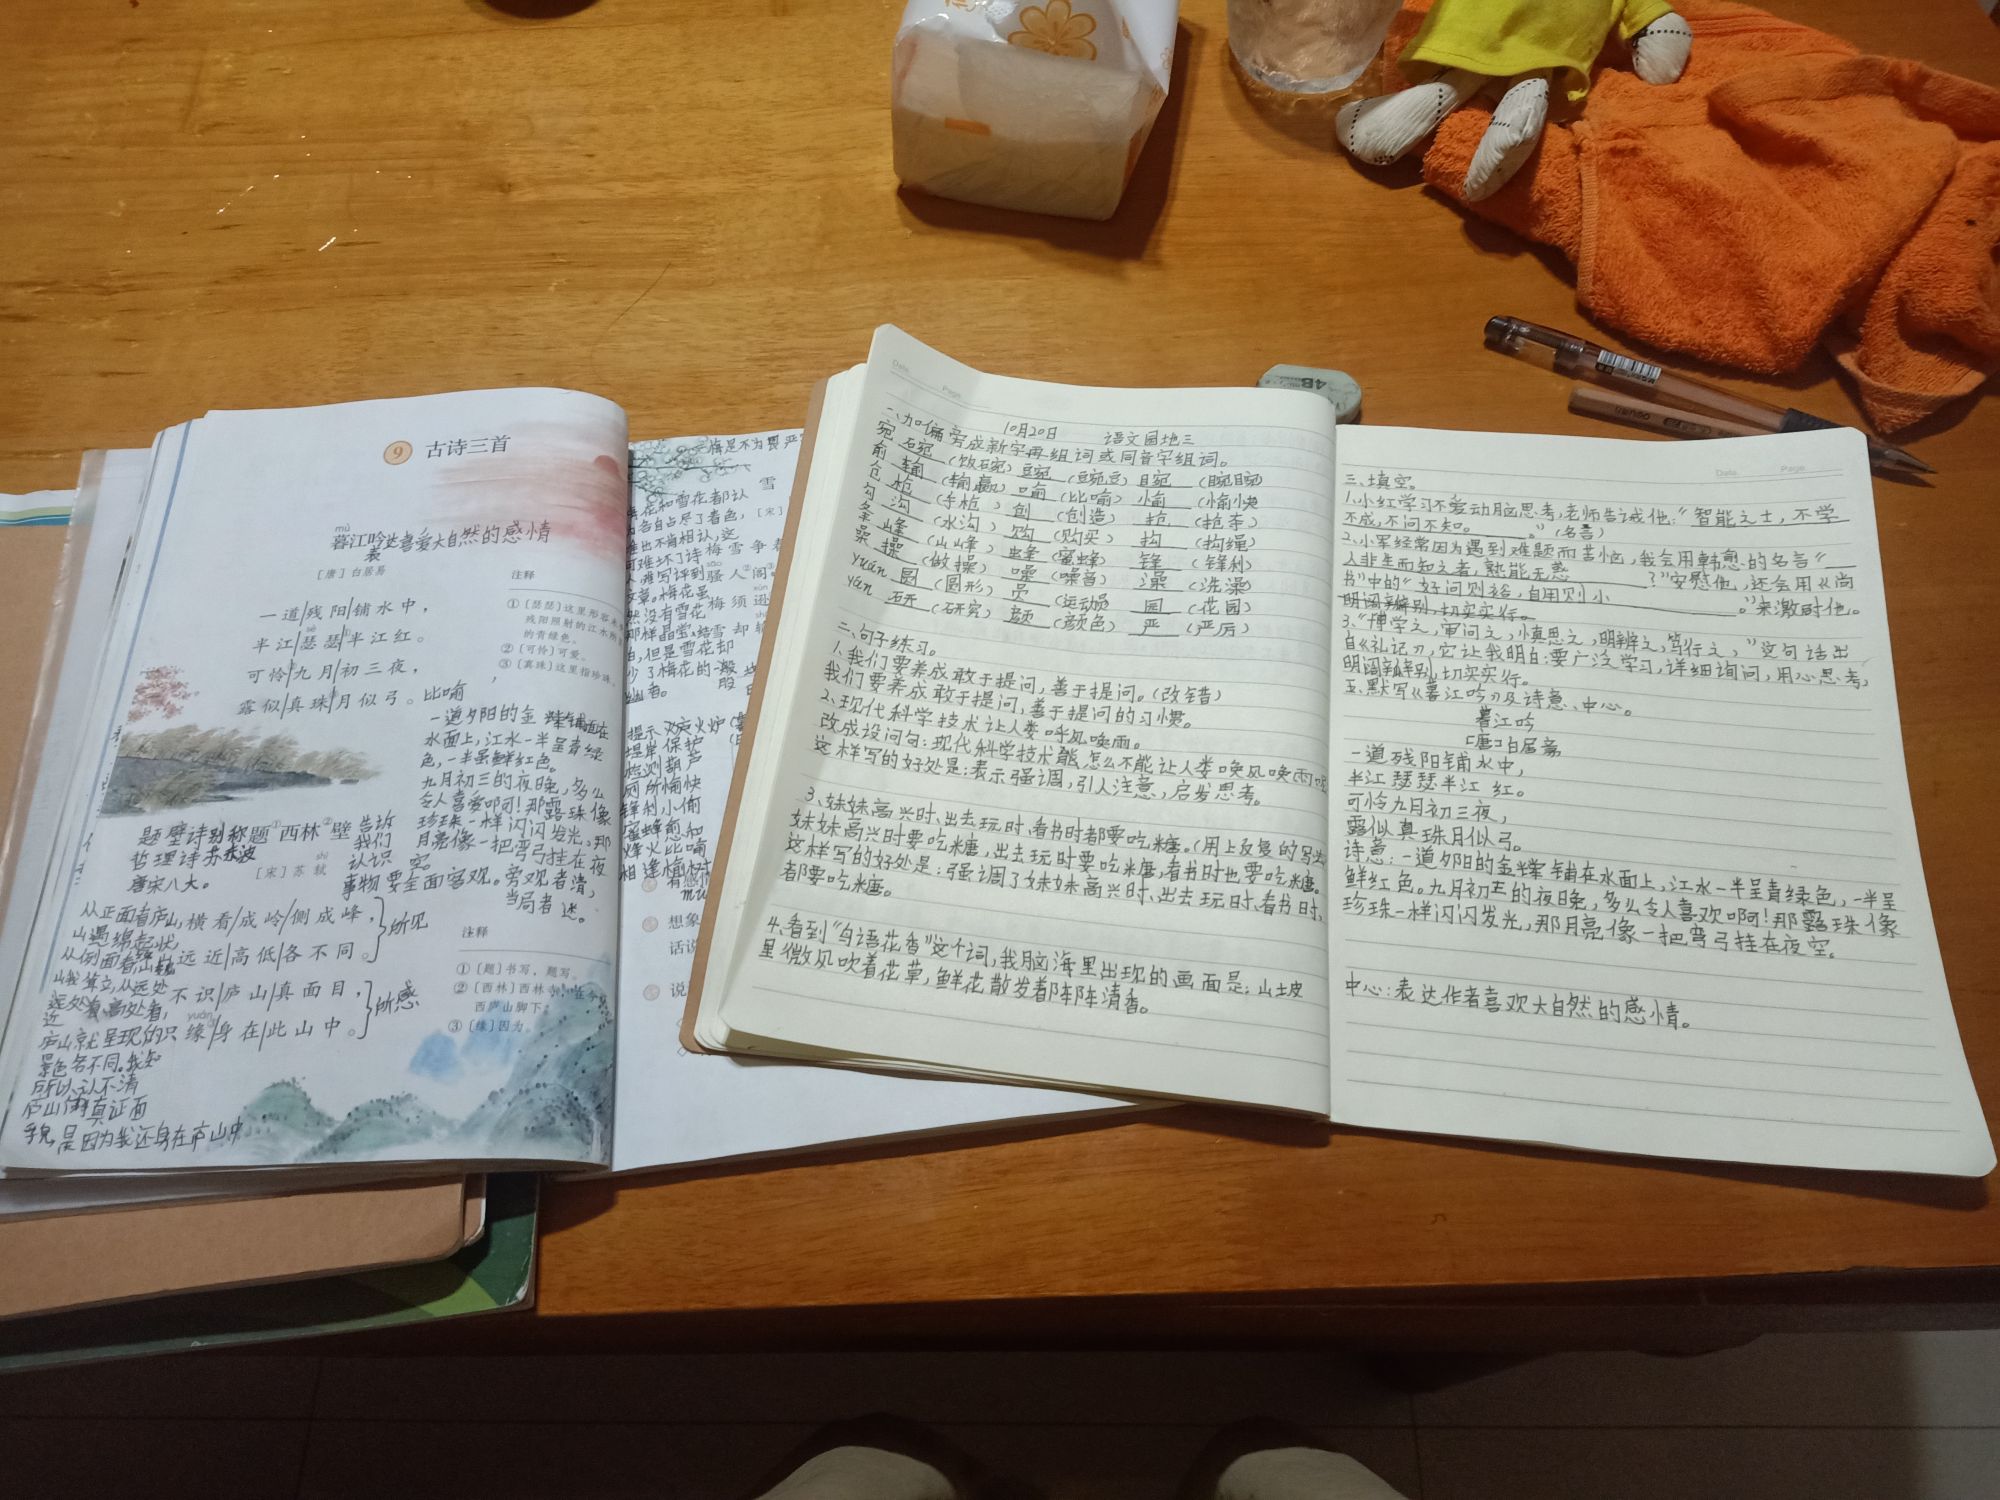 9 古诗三首
mù
暮江吟 表达喜爱大自然的感情
[唐]白居易
一道/残阳/铺水中,
半江/瑟瑟/半江红。
可怜/九月/初三夜,
露似/真珠/月似弓。比喻
注释
①[瑟瑟]这里形容
残阳照射的江水
的青绿色。
②[可怜]可爱。
③[真珠]这里指珍珠。
一道夕阳的金辉铺在
水面上,江水一半呈青绿
色,一半呈鲜红色。
九月初三的夜晚,多么
令人喜爱啊!那露珠像
珍珠一样闪闪发光,那
月亮像一把弯弓挂在夜
空。
题壁诗 别称 题①西林②壁
哲理诗 苏东波
唐宋八大。
[宋]苏轼
shì
告诉
我们
认识
事物要全面客观。旁观者清,
当局者迷。
横看/成岭/侧成峰,
远近/高低/各不同。
}所见
不识/庐山/真面目,
只缘/身在/此山中。
}所感
yuán
从正面看庐山,
山
从侧面看,山
远处看,高处看,
近
庐山就呈现的
景色各不同。我知
所以认不清
庐山
貌,是因为我还身在庐山中
注释
①[题]书写,题写。
②[西林]西林寺,在今
西庐山脚下。
③[缘]因为。
梅是不为畏严
雪
[宋]
梅花和雪花都认
各自占尽了春色,
谁也不肯相认,这
可难坏了诗
人难写评判
文章。梅花虽
然没有雪花
那样晶莹洁
白,但是雪花却
少了梅花的一般
幽香。
梅雪争春
骚人阁
梅须逊
雪却输
提示 炉火炉
堤岸 保护
检测 葫芦
厕所 愉快
锋利 小偷
蜜蜂
烽火 比喻
相逢
想象
话说
Date Page
10月20日 语文园地三
一、加偏旁成新字再组词或同音字组词。
宛 碗 (饭碗) 豌 (豌豆)
俞 输 (输赢) 喻 (比喻) 愉 (愉快)
仓 枪 (手枪) 创 (创造) 抢 (抢夺)
勾 沟 (水沟) 购 (购买) 构
夆 峰 (山峰) 蜂 (蜜蜂) 锋 (锋利)
喿 操 (做操) 噪 (噪音) 澡 (洗澡)
yuán 圆 (圆形) 员 (运动员) 园 (花园)
yán 研 (研究) 颜 (颜色) 严 (严厉)
二、句子练习。
1、我们要养成敢于提问,善于提问。(改错)
我们要养成敢于提问,善于提问的习惯。
2、现代科学技术让人类呼风唤雨。
改成设问句:现代科学技术 怎么不能让人类唤风唤雨呢
这样写的好处是:表示强调,引人注意,启发思考。
3、妹妹高兴时、出去玩时、看书时都要吃糖。(用上反复的写出
妹妹高兴时要吃糖,出去玩时要吃糖,看书时也要吃糖。
这样写的好处是:强调了妹妹高兴时、出去玩时、看书时、
都要吃糖。
4、看到“鸟语花香”这个词,我脑海里出现的画面是:山坡
里微风吹着花草,鲜花散发着阵阵清香。
Date Page
三、填空。
1、小红学习不爱动脑思考,老师告诫他:“智能之士,不学
不成,不问不知。”(名言)
2、小军经常因为遇到难题而苦恼,我会用韩愈的名言“
人非生而知之者,孰能无惑?”安慰他,还会用《尚
书》中的“好问则裕,自用则小。”来激励他。
明辨别,切实实行。
3、“博学之,审问之,慎思之,明辨之,笃行之,”这句话出
自《礼记》,它让我明白:要广泛学习,详细询问,用心思考,
明辨别,切实实行。
五、默写《暮江吟》及诗意、中心。
暮江吟
[唐]白居易
一道残阳铺水中,
半江瑟瑟半江红。
可怜九月初三夜,
露似真珠月似弓。
诗意:一道夕阳的金辉铺在水面上,江水一半呈青绿色,一半呈
鲜红色。九月初三的夜晚,多么令人喜欢啊!那露珠像
珍珠一样闪闪发光,那月亮像一把弯弓挂在夜空。
中心:表达作者喜欢大自然的感情。
4B